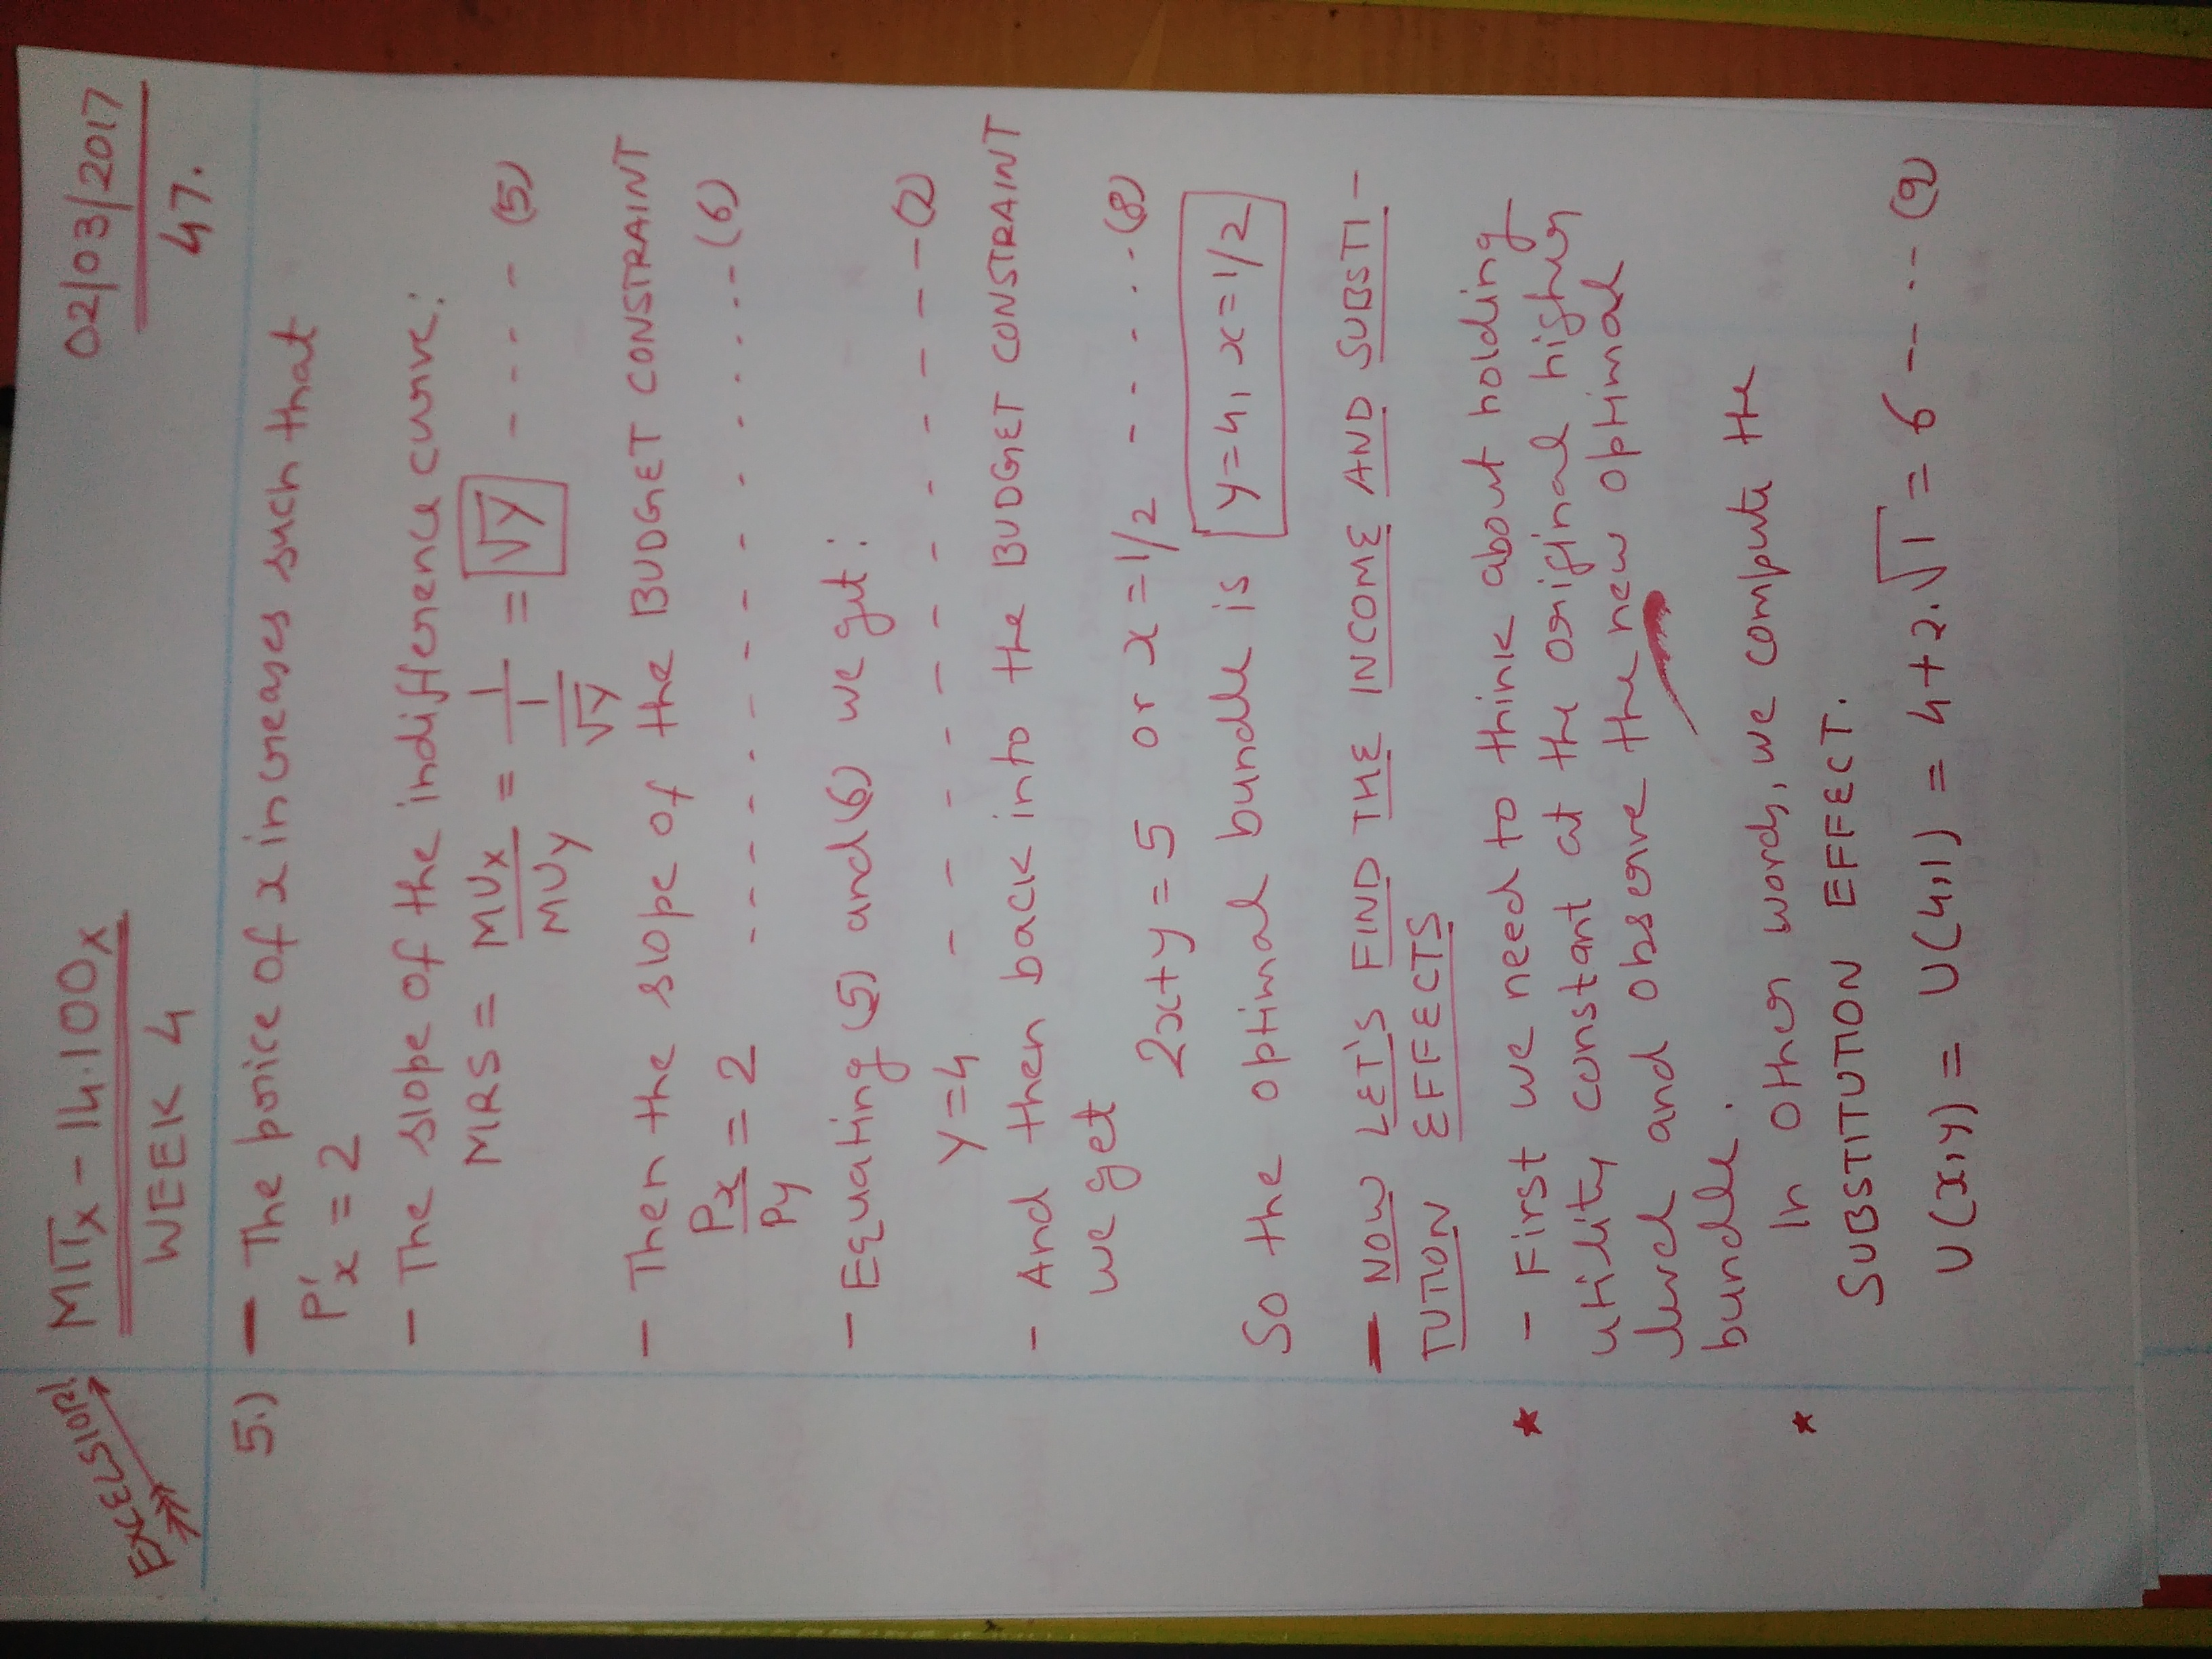 EXCELSIOR!
MITx - 14.100x
WEEK 4
02/03/2017
47.
5.) - The price of x increases such that
P'x = 2
- The slope of the indifference curve:
MRS = MUx/MUy = 1/(1/√y) = √y ---- (5)
- Then the slope of the BUDGET CONSTRAINT
Px/Py = 2 ---------------- (6)
- Equating (5) and (6) we get:
y=4 ------------ (7)
- And then back into the BUDGET CONSTRAINT
we get
2x+y = 5 or x = 1/2 ------ (8)
So the optimal bundle is y=4, x=1/2
- NOW LET'S FIND THE INCOME AND SUBSTI-
TUTION EFFECTS
★ - First we need to think about holding
utility constant at the original higher
level and observe the new optimal
bundle.
★ In other words, we compute the
SUBSTITUTION EFFECT.
U(x,y) = U(4,1) = 4+2.√1 = 6 ---- (9)